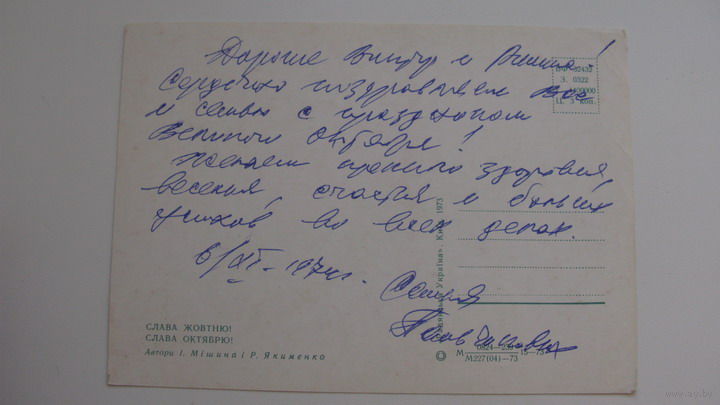 Дорогие Виктор и Римма!
Сердечно поздравляем Вас
и семью с праздником
Великого Октября!
Желаем крепкого здоровья,
веселья, счастья и больших
успехов во всех делах.
6/XI-1974г.
Семья
З. 0322
Ц. 3 коп.
Україна». Київ. 1973
СЛАВА ЖОВТНЮ!
СЛАВА ОКТЯБРЮ!
Автори І. Мішина і Р. Якименко
М 15—73
М227(04)—73